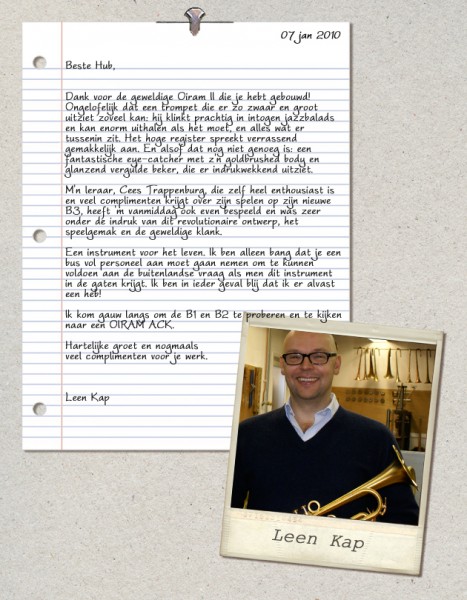 07 jan 2010
Beste Hub,
Dank voor de geweldige Oiram II die je hebt gebouwd!
Ongelofelijk dat een trompet die er zo zwaar en groot
uitziet zoveel kan: hij klinkt prachtig in intogen jazzbalads
en kan enorm uithalen als het moet, en alles wat er
tussenin zit. Het hoge register spreekt verrassend
gemakkelijk aan. En alsof dat nog niet genoeg is: een
fantastische eye-catcher met z'n goldbrushed body en
glanzend vergulde beker, die er indrukwekkend uitziet.
M'n leraar, Cees Trappenburg, die zelf heel enthousiast is
en veel complimenten krijgt over zijn spelen op zijn nieuwe
B3, heeft 'm vanmiddag ook even bespeeld en was zeer
onder de indruk van dit revolutionaire ontwerp, het
speelgemak en de geweldige klank.
Een instrument voor het leven. Ik ben alleen bang dat je een
bus vol personeel aan moet gaan nemen om te kunnen
voldoen aan de buitenlandse vraag als men dit instrument
in de gaten krijgt. Ik ben in ieder geval blij dat ik er alvast
een heb!
Ik kom gauw langs om de B1 en B2 te proberen en te kijken
naar een OIRAM ACK.
Hartelijke groet en nogmaals
veel complimenten voor je werk.
Leen Kap
Leen Kap